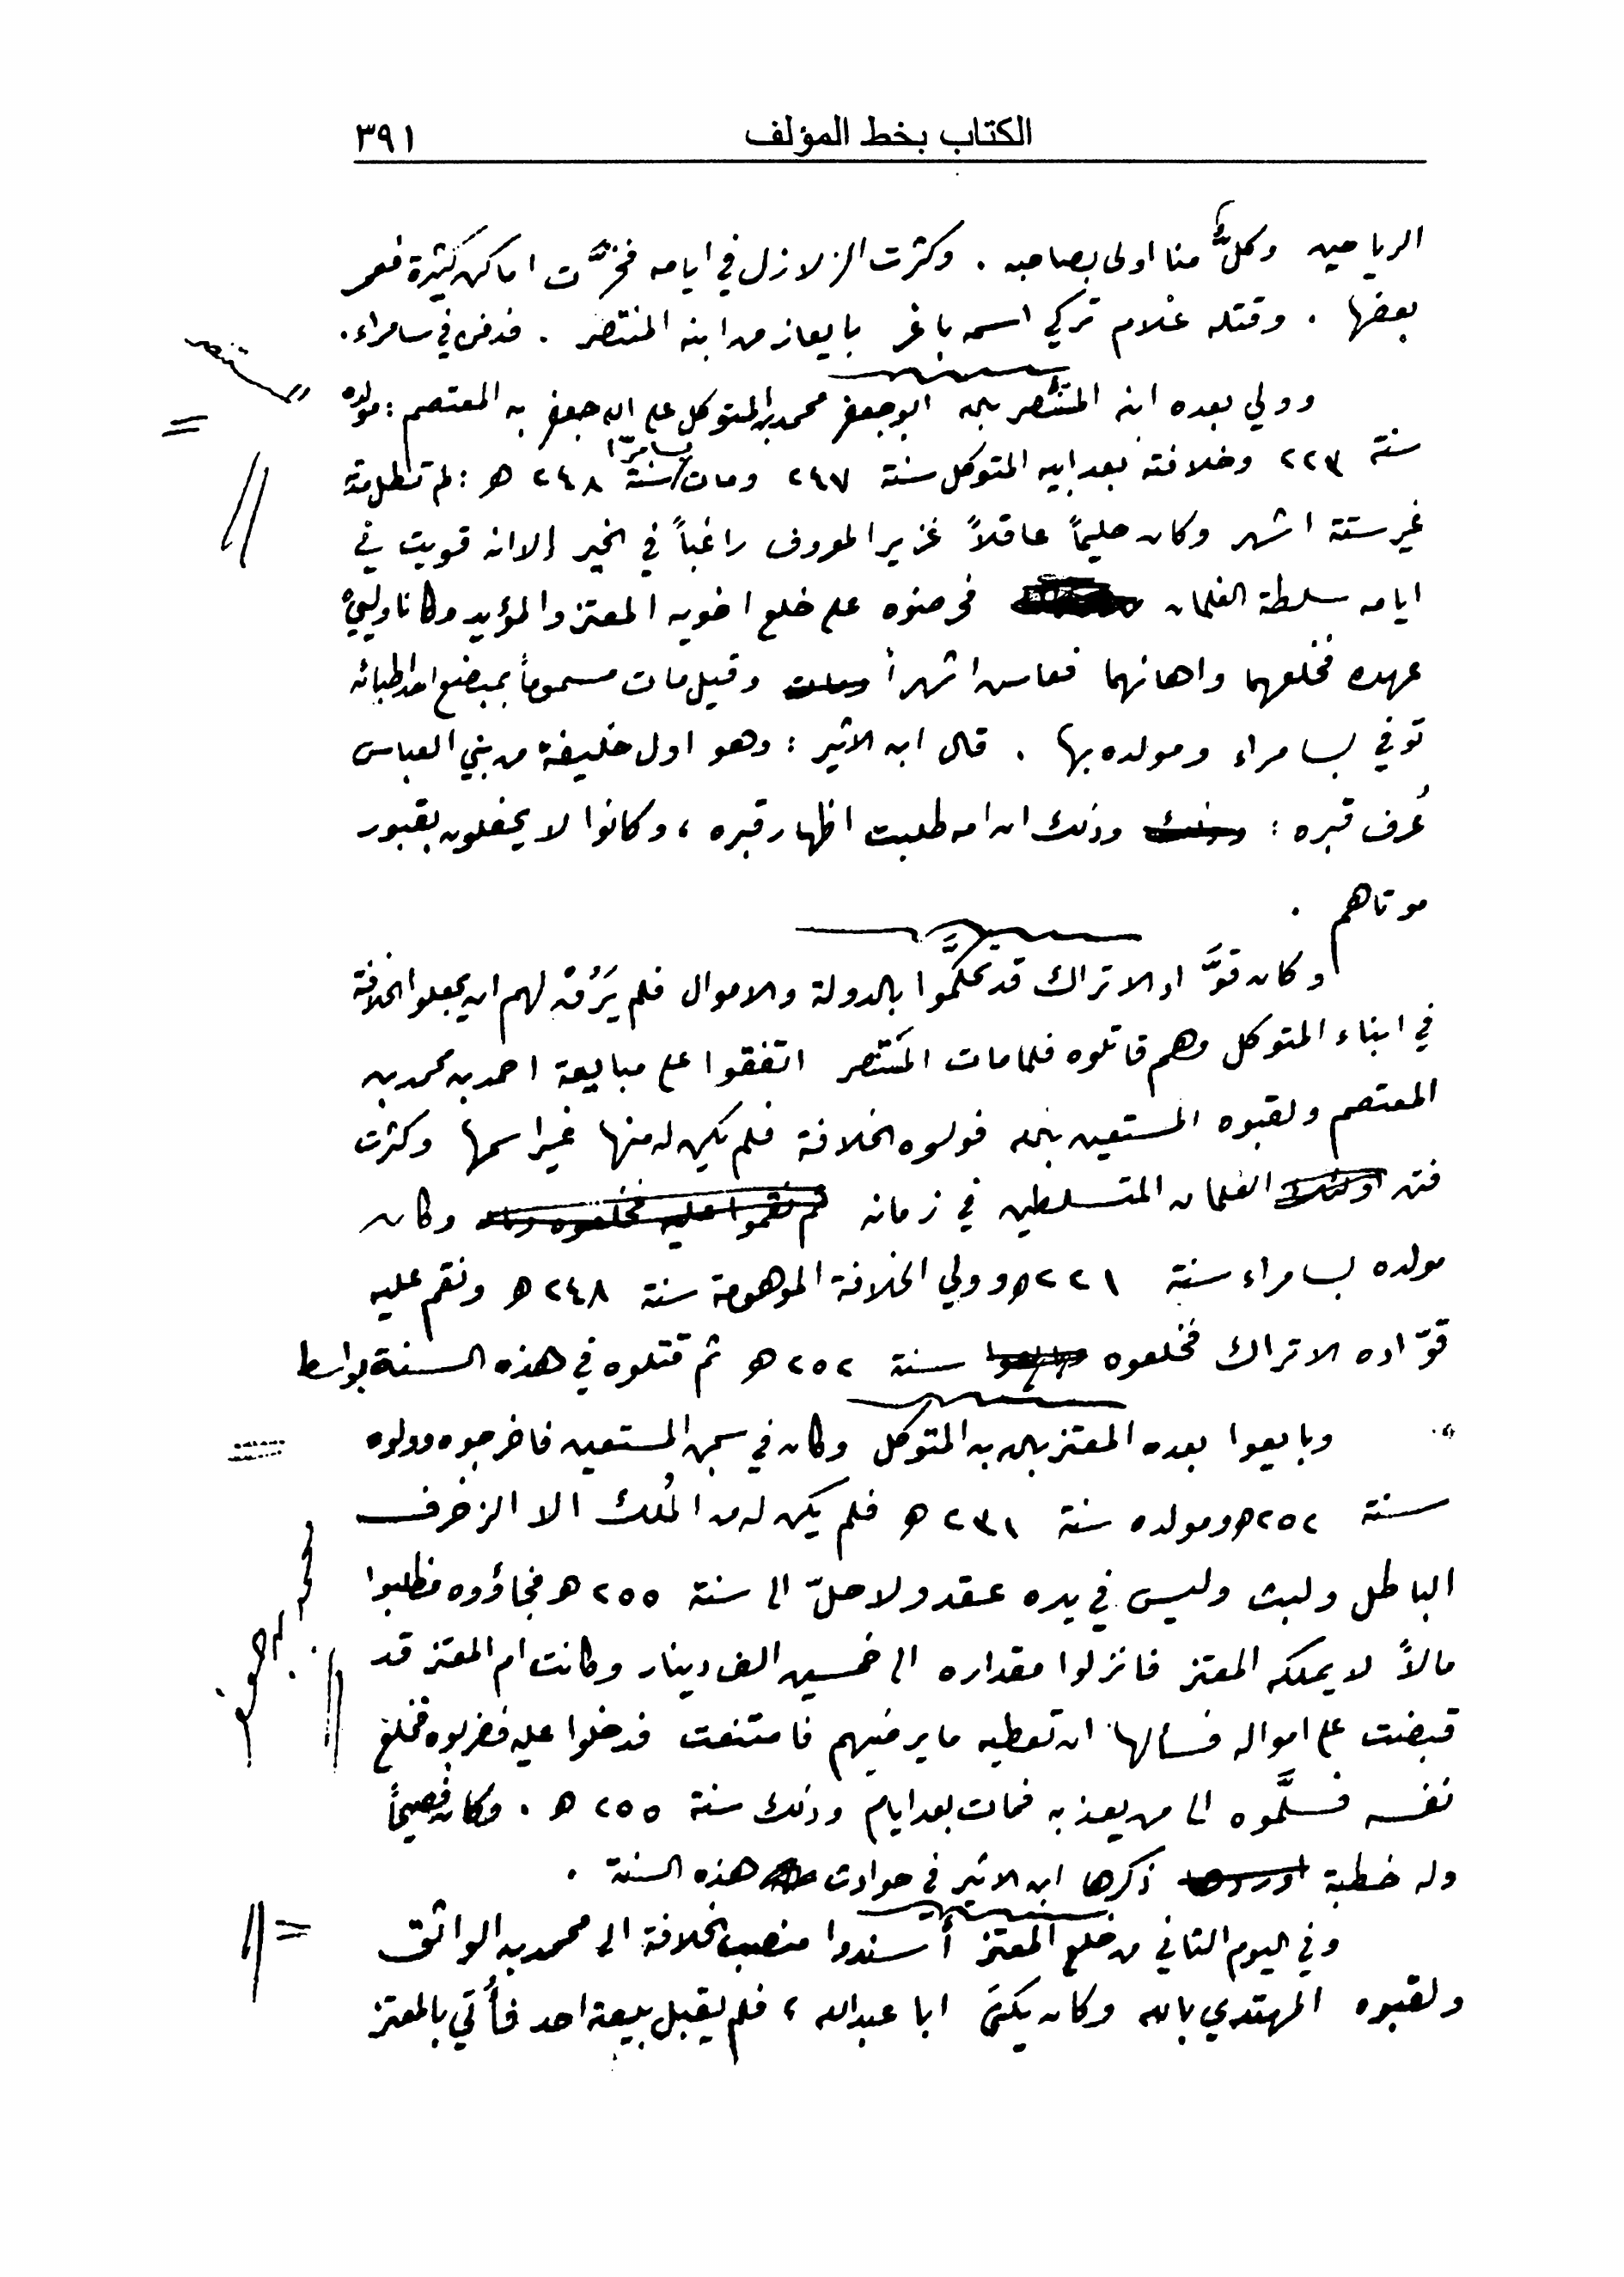 الكتاب بخط المؤلف ٣٩١
الرياحين وكلٌّ منا اولى بصاحبه . وكثرت الزلازل في ايامه فخرَّبت اماكن كثيرة فعمر
بعضها . وقتله غلام تركي اسمه باغر بايعاز من ابنه المنتصر . فدفن في سامراء .
وولي بعده ابنه المنتصر بالله ابو جعفر محمد بن المتوكل على الله جعفر بن المعتصم : مولده
سنة ٢٢٣ وخلافته بعد ابيه المتوكل سنة ٢٤٧ ومات بسامرّا سنة ٢٤٨ هـ : لم تطل مدته
غير ستة اشهر وكان حليماً عاقلاً غزير المعروف راغباً في الخير إلا انه قويت في
ايامه سلطة الغلمان فحرضوه على خلع اخويه المعتز والمؤيد وكانا ولييْ
عهده فخلعهما واهانهما فعاش اشهراً وقيل مات مسموماً بمبضع احد اطبائه
توفي بسامراء ومولده بها . قال ابن الاثير : وهو اول خليفة من بني العباس
عُرف قبره : وذلك ان امه طلبت اظهار قبره ، وكانوا لا يحفلون بقبور
موتاهم .
وكان قوَّاد الاتراك قد تحكَّموا بالدولة والاموال فلم يَرُقْ لهم ان يجعلوا الخلافة
في ابناء المتوكل وهم قاتلوه فلما مات المنتصر اتفقوا على مبايعة احمد بن محمد بن
المعتصم ولقبوه المستعين بالله فولوه الخلافة فلم يكن له منها غير اسمها وكثرت
فتن اولئك الغلمان المتسلطين في زمانه ثم نقموا عليه فخلعوه وكان
مولده بسامراء سنة ٢٢١ هـ وولي الخلافة الموهومة سنة ٢٤٨ هـ ونقم عليه
قوّاده الاتراك فخلعوه سنة ٢٥٢ هـ ثم قتلوه في هذه السنة بواسط
وبايعوا بعده المعتز بالله بن المتوكل وكان في سجن المستعين فاخرجوه وولوه
سنة ٢٥٢ هـ ومولده سنة ٢٣١ هـ فلم يكن له من المُلك الا الزخرف
الباطل ولبث وليس في يده عقد ولا حلّ الى سنة ٢٥٥ هـ فجاؤوه فطلبوا
مالاً لا يملكه المعتز فانزلوا مقداره الى خمسين الف دينار وكانت ام المعتز قد
قبضت على امواله فسألها ان تعطيه ما يرضيهم فامتنعت فدخلوا عليه فضربوه فخلع
نفسه فسلَّموه الى من يعذبه فمات بعد ايام وذلك سنة ٢٥٥ هـ . وكان فصيحاً
وله خطبة اوردها ذكرها ابن الاثير في حوادث هذه السنة .
وفي اليوم الثاني من خلع المعتز أسندوا منصب الخلافة الى محمد بن الواثق
ولقبوه المهتدي بالله وكان يكنى ابا عبد الله ، فلم يقبل بيعة احد فأُتي بالمعتز